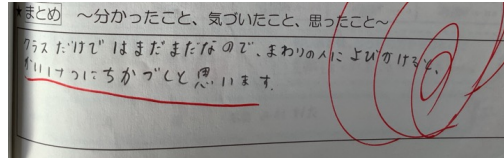 ★まとめ ～分かったこと、気づいたこと、思ったこと～
クラスだけではまだまだなので、まわりの人によびかけると、
かいけつにちかづくと思います。